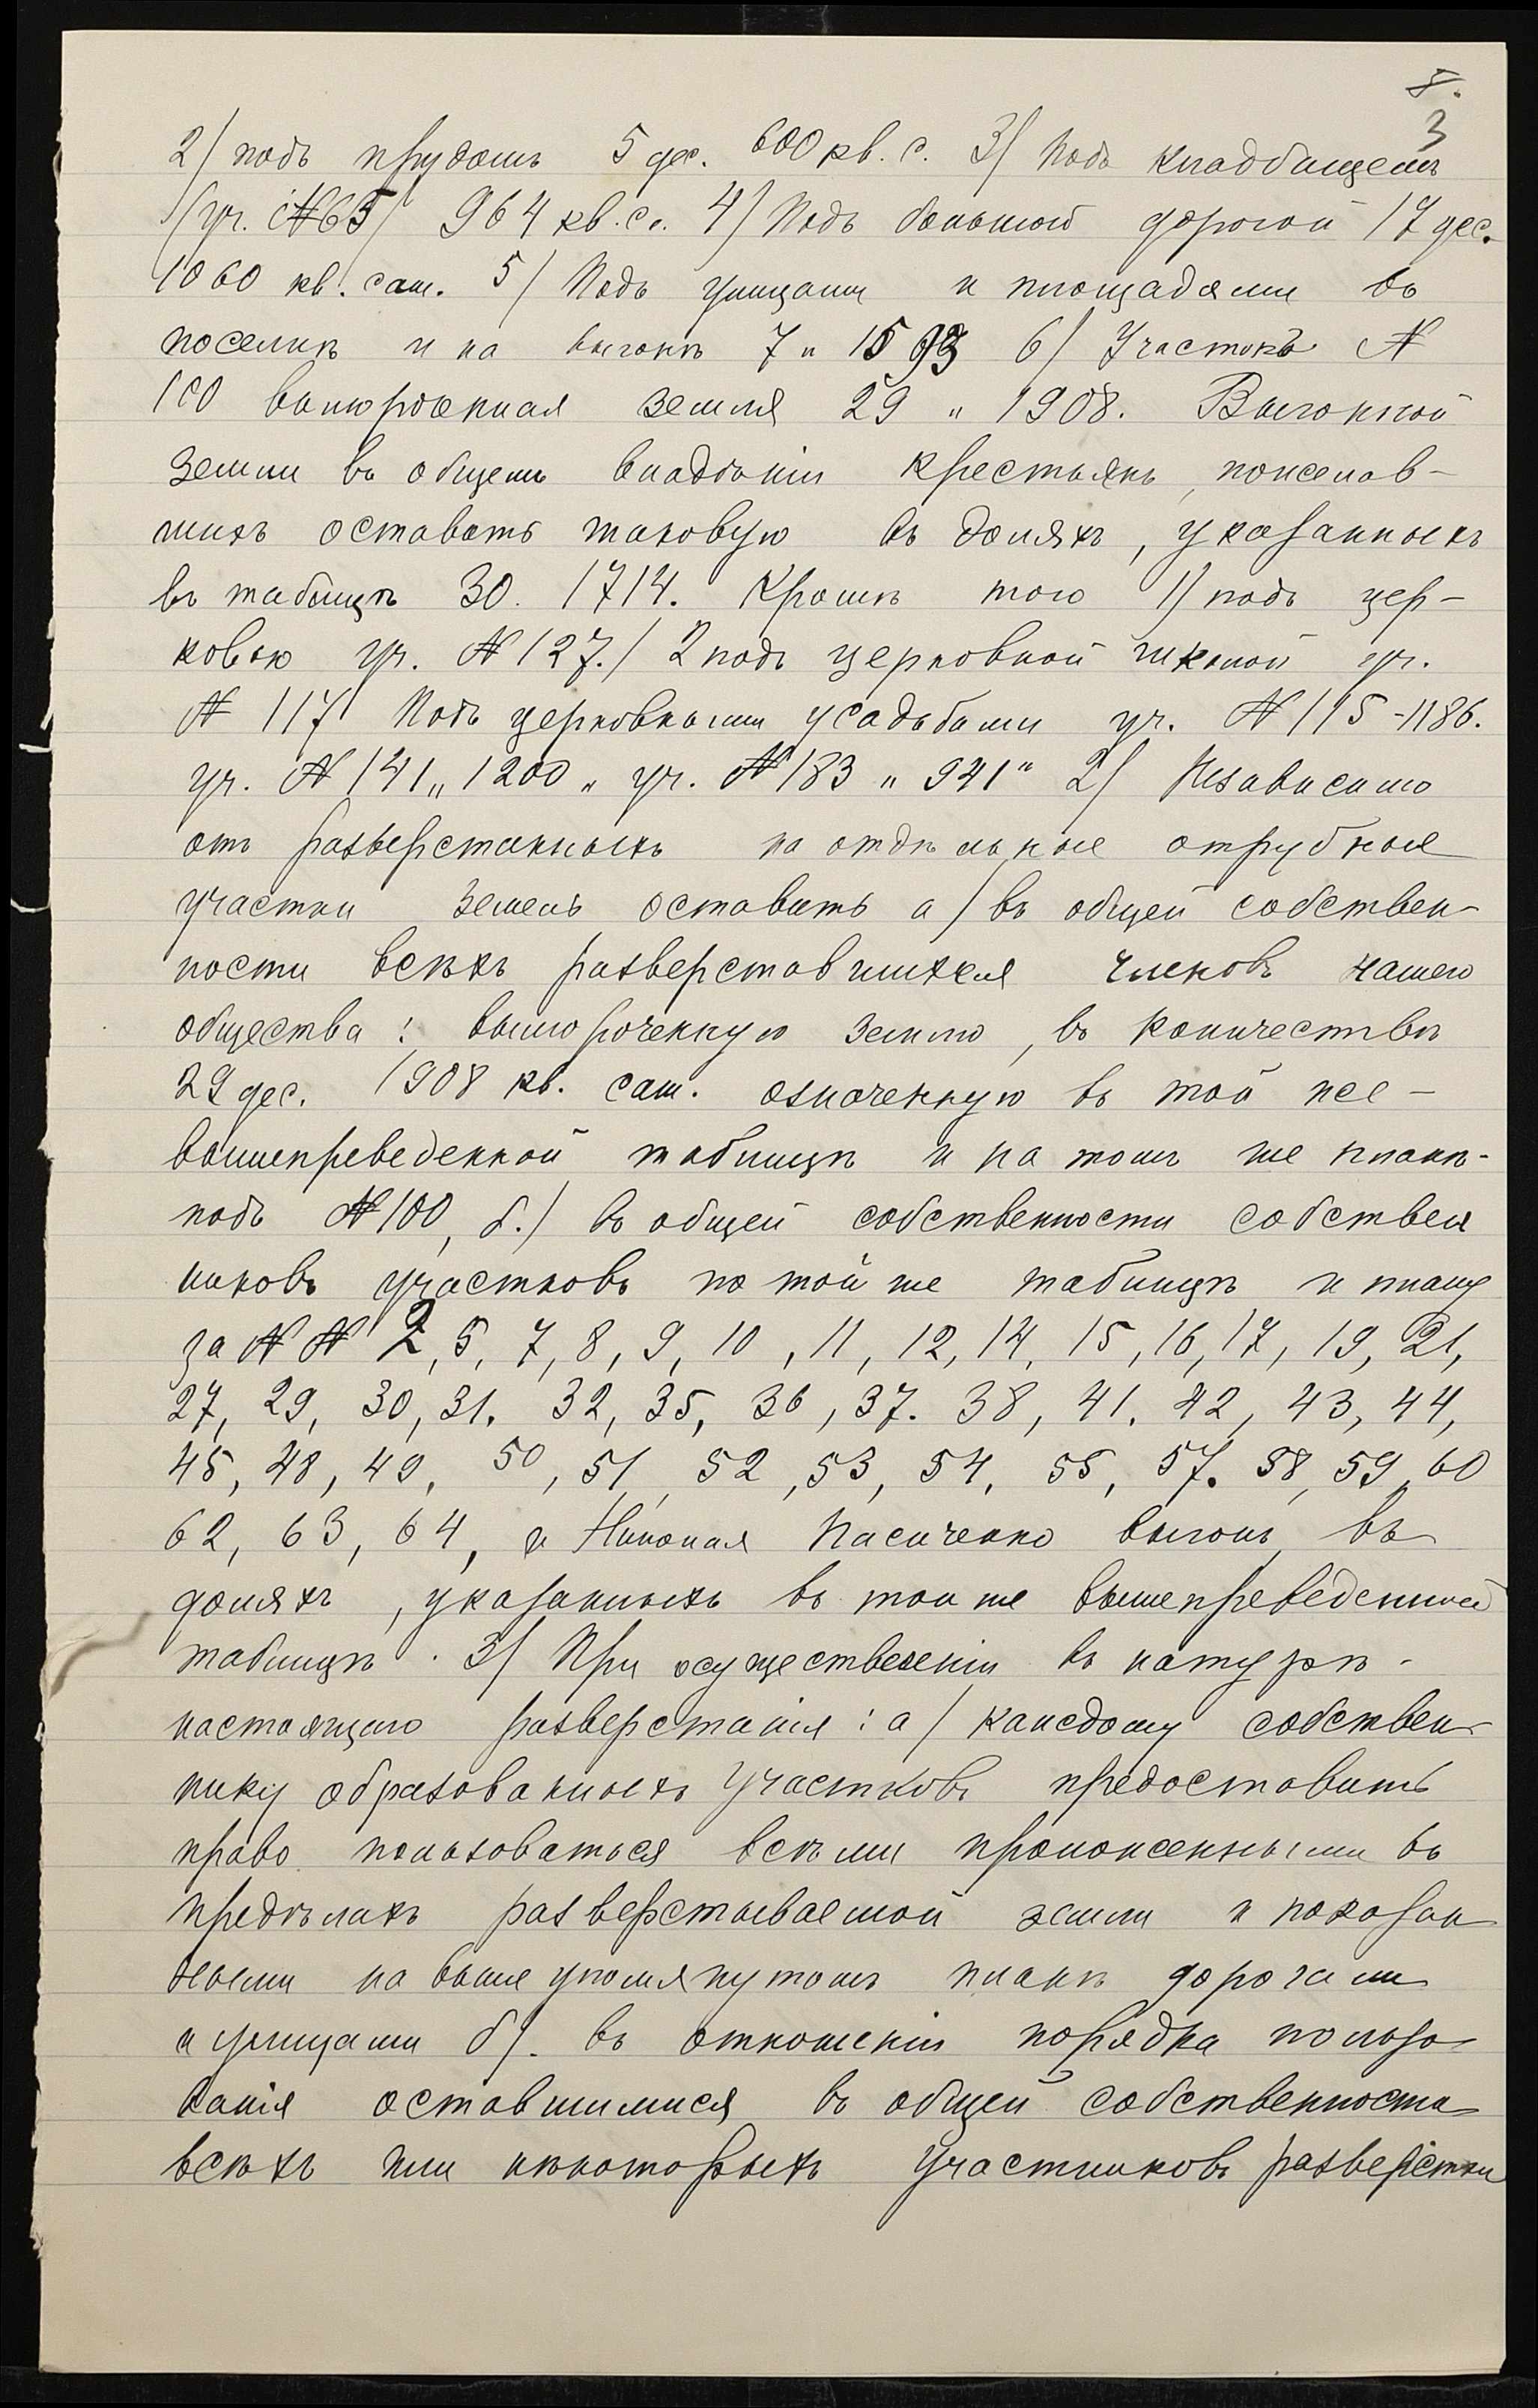 8.
3
2/ подъ прудомъ 5 дес. 600 кв. с. 3/ Подъ кладбищемъ
/уч. №65/ 964 кв. с. 4/ Подъ большой дорогой 17 дес.
1060 кв. саж. 5/ Подъ улицами и площадями въ
поселкѣ и на выгонѣ 7 „ 1593 6/ Участокъ №
100 вымороченная земля 29 „ 1908. Выгонной
земли въ общемъ владѣніи крестьянъ, пожелав-
шихъ оставить таковую въ доляхъ, указанныхъ
въ таблицѣ 30. 1714. Кромѣ того 1/ подъ цер-
ковью уч. № 127./ 2 подъ церковной школой уч.
№ 117/ Подъ церковными усадьбами уч. № 115 - 1186.
уч. № 141 „ 1200 „ уч. № 183 „ 941 „ 2/ Независимо
отъ разверстанныхъ на отдѣльные отрубные
участки земель оставить а/ въ общей собствен-
ности всѣхъ разверставшихся членовъ нашего
общества: вымороченную землю, въ количествѣ
29 дес. 1908 кв. саж. означенную въ той же -
вышепреведенной таблицѣ и на томъ же планѣ -
подъ № 100, б./ въ общей собственности собствен
никовъ участковъ по той же таблицѣ и плану
за №№ 2, 5, 7, 8, 9, 10, 11, 12, 14, 15, 16, 17, 19, 21,
27, 29, 30, 31. 32, 35, 36, 37. 38, 41. 42, 43, 44,
45, 48, 49, 50, 51, 52, 53, 54, 55, 57. 58, 59, 60
62, 63, 64, и Николая Пасиченко выгонъ въ
доляхъ, указанныхъ въ той же вышепреведенной
таблицѣ. 3/ При осуществленіи въ натурѣ -
настоящаго разверстанія: а/ каждому собствен-
нику образованныхъ участковъ предоставить
право пользоваться всѣми проложенными въ
предѣлахъ разверстываемой земли и показан
ными на выше упомянутомъ планѣ дорогами
и улицами б/. въ отношеніи порядка пользо-
ванія оставшимися въ общей собственности
всѣхъ или нѣкоторыхъ участниковъ разверстки